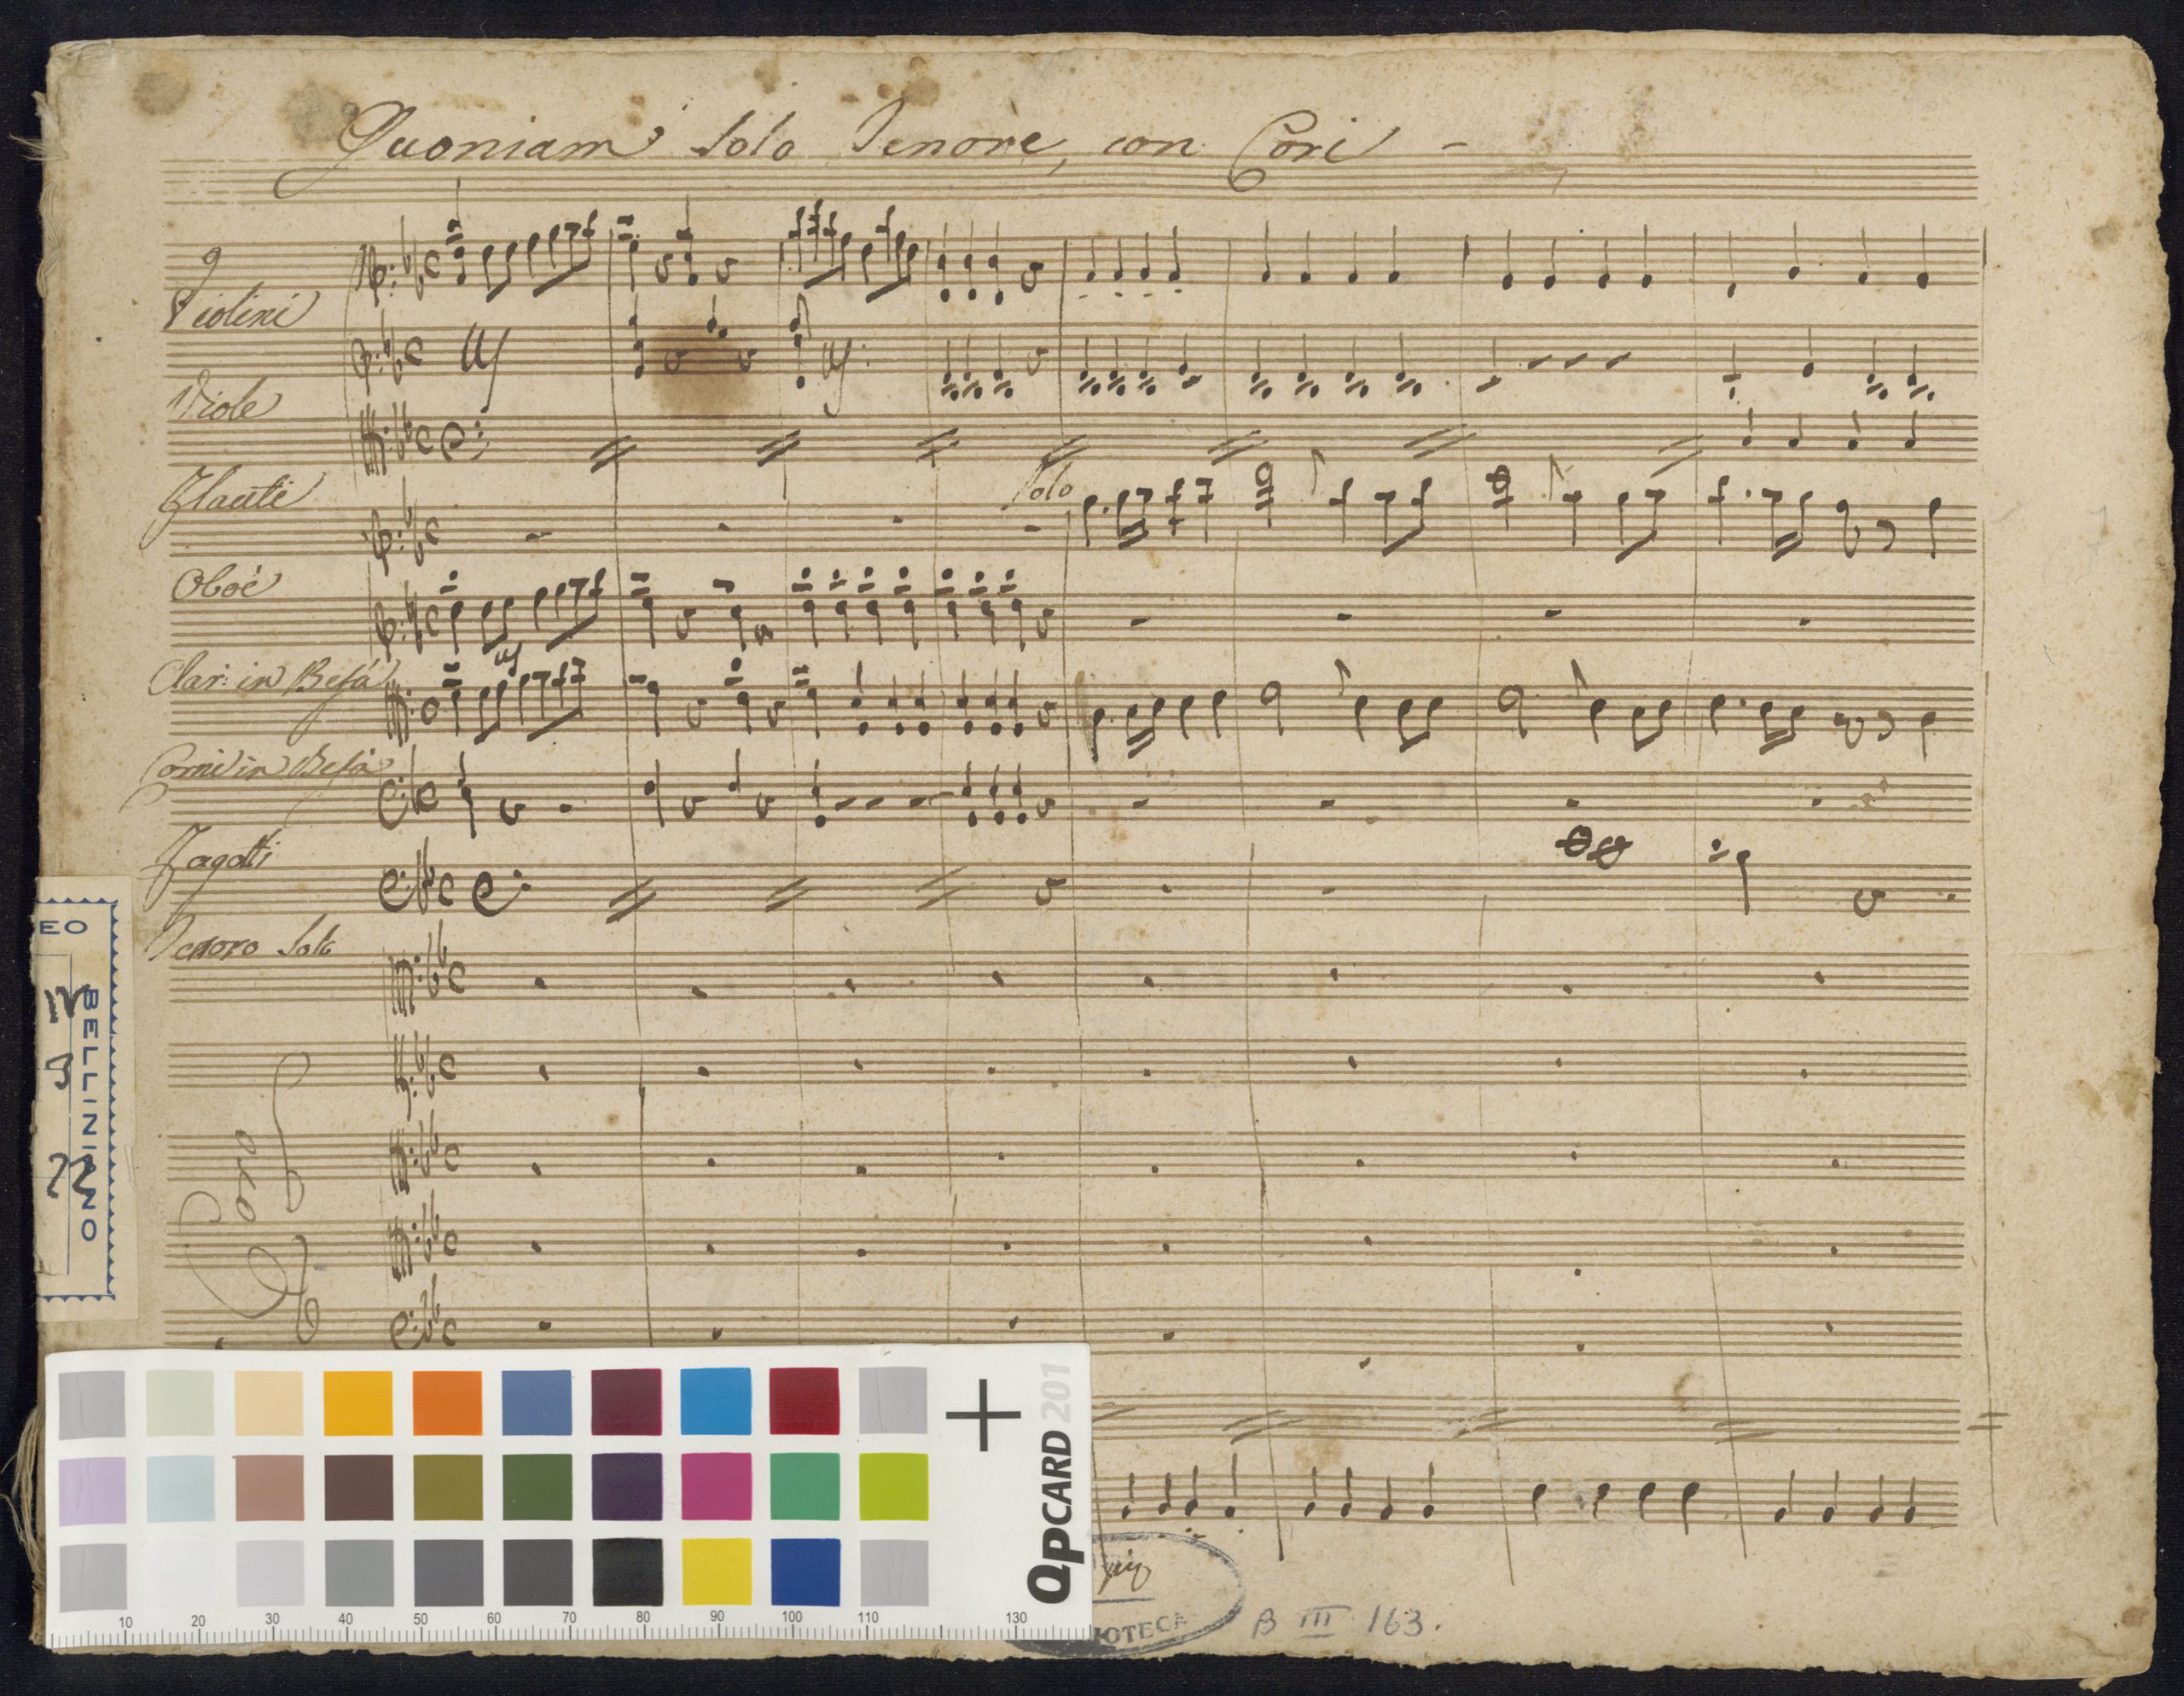 Quoniam Solo Tenore, con Cori -
Violini
Viole
Flauti
Solo
Oboè
Clar: in Befà
Corni in Befà
Fagotti
Tenore Solo
Coro
EO
BELLINIANO
QPCARD 201
10 20 30 40 50 60 70 80 90 100 110 130
IOTECA
B III 163.